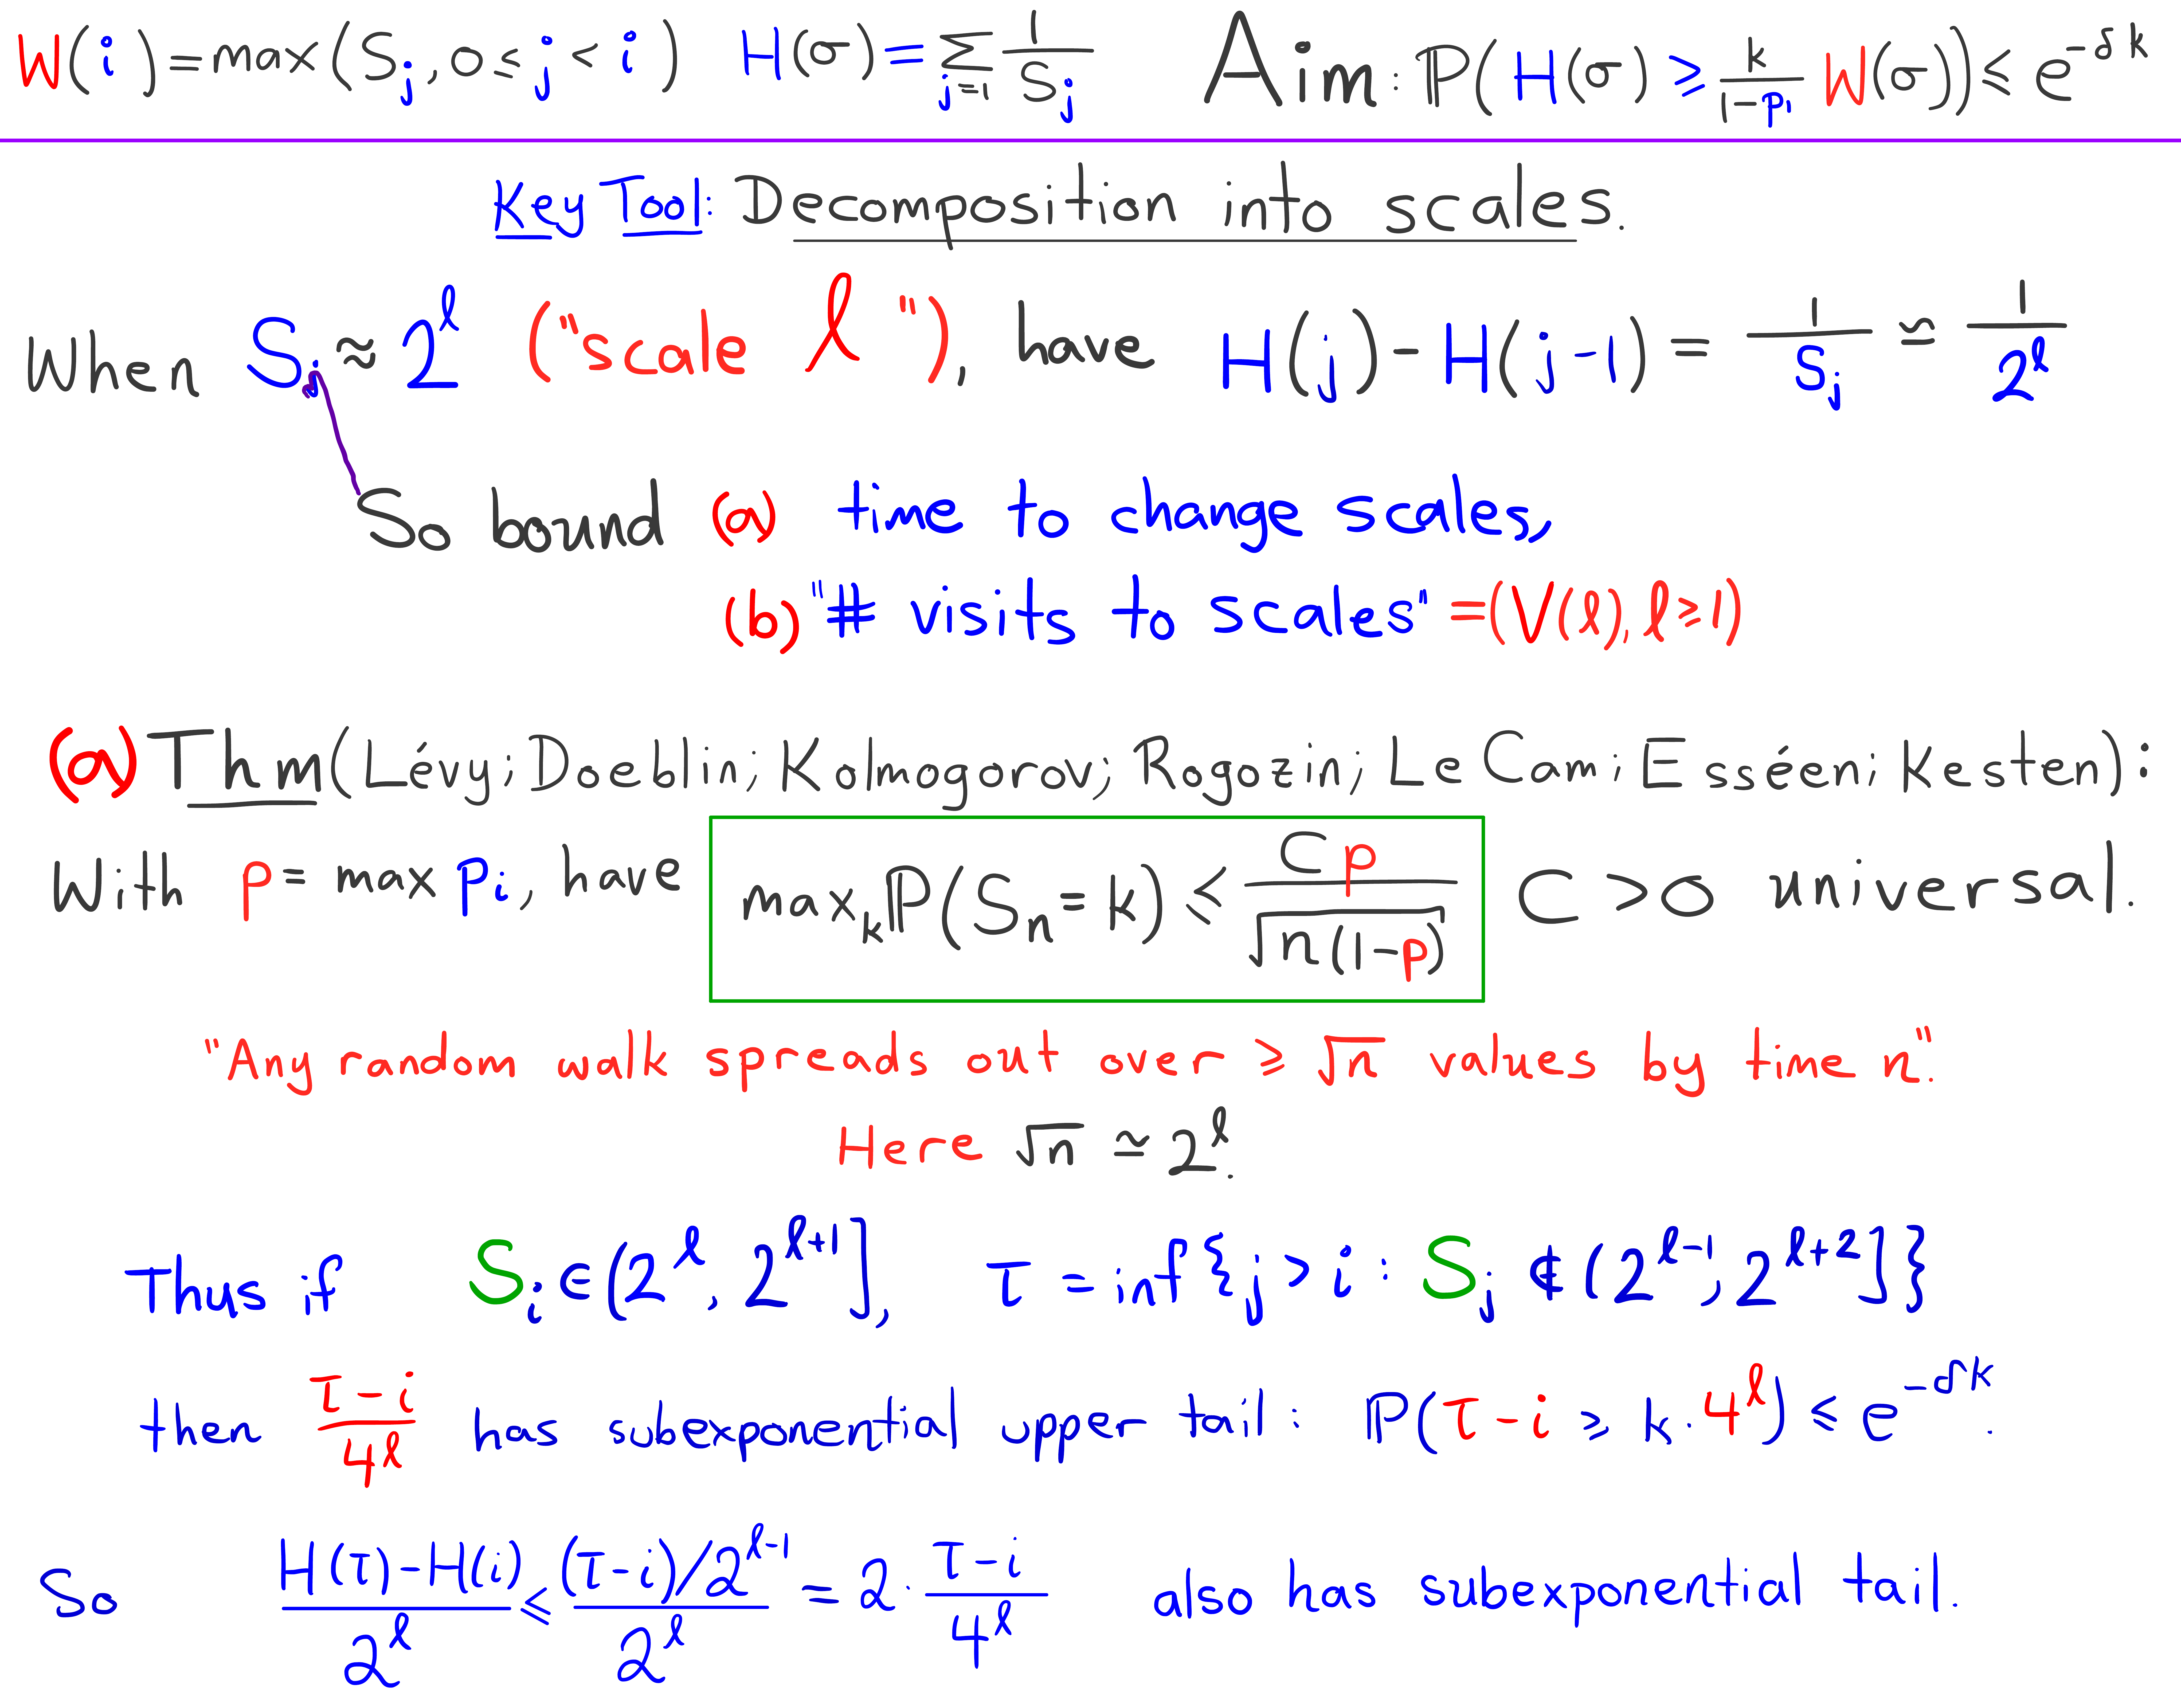 W(i) = max(S_j, 0 ≤ j < i) H(σ) = Σ_{j=1} 1/S_j Aim: ℙ(H(σ) ≥ k/(1-p_1) W(σ)) ≤ e^{-δk}
Key Tool: Decomposition into scales.
When S_j ≈ 2^ℓ ("scale ℓ"), have H(j) - H(j-1) = 1/S_j ≈ 1/2^ℓ
So bound (a) time to change scales,
(b) "# visits to scales" = (V(ℓ), ℓ ≥ 1)
(a) Thm (Lévy; Doeblin; Kolmogorov; Rogozin; Le Cam; Esséen; Kesten):
With p = max p_i, have max_k ℙ(S_n = k) ≤ Cp/√n(1-p) C > 0 universal.
"Any random walk spreads out over ≥ √n values by time n".
Here √n ≃ 2^ℓ.
Thus if S_i ∈ (2^ℓ, 2^{ℓ+1}], τ = inf{j > i : S_j ∉ (2^{ℓ-1}, 2^{ℓ+2}]}
then (τ-i)/4^ℓ has subexponential upper tail: ℙ(τ-i ≥ k·4^ℓ) ≤ e^{-δk}.
So (H(τ)-H(i))/2^ℓ ≤ ((τ-i)/2^{ℓ-1})/2^ℓ = 2·(τ-i)/4^ℓ also has subexponential tail.